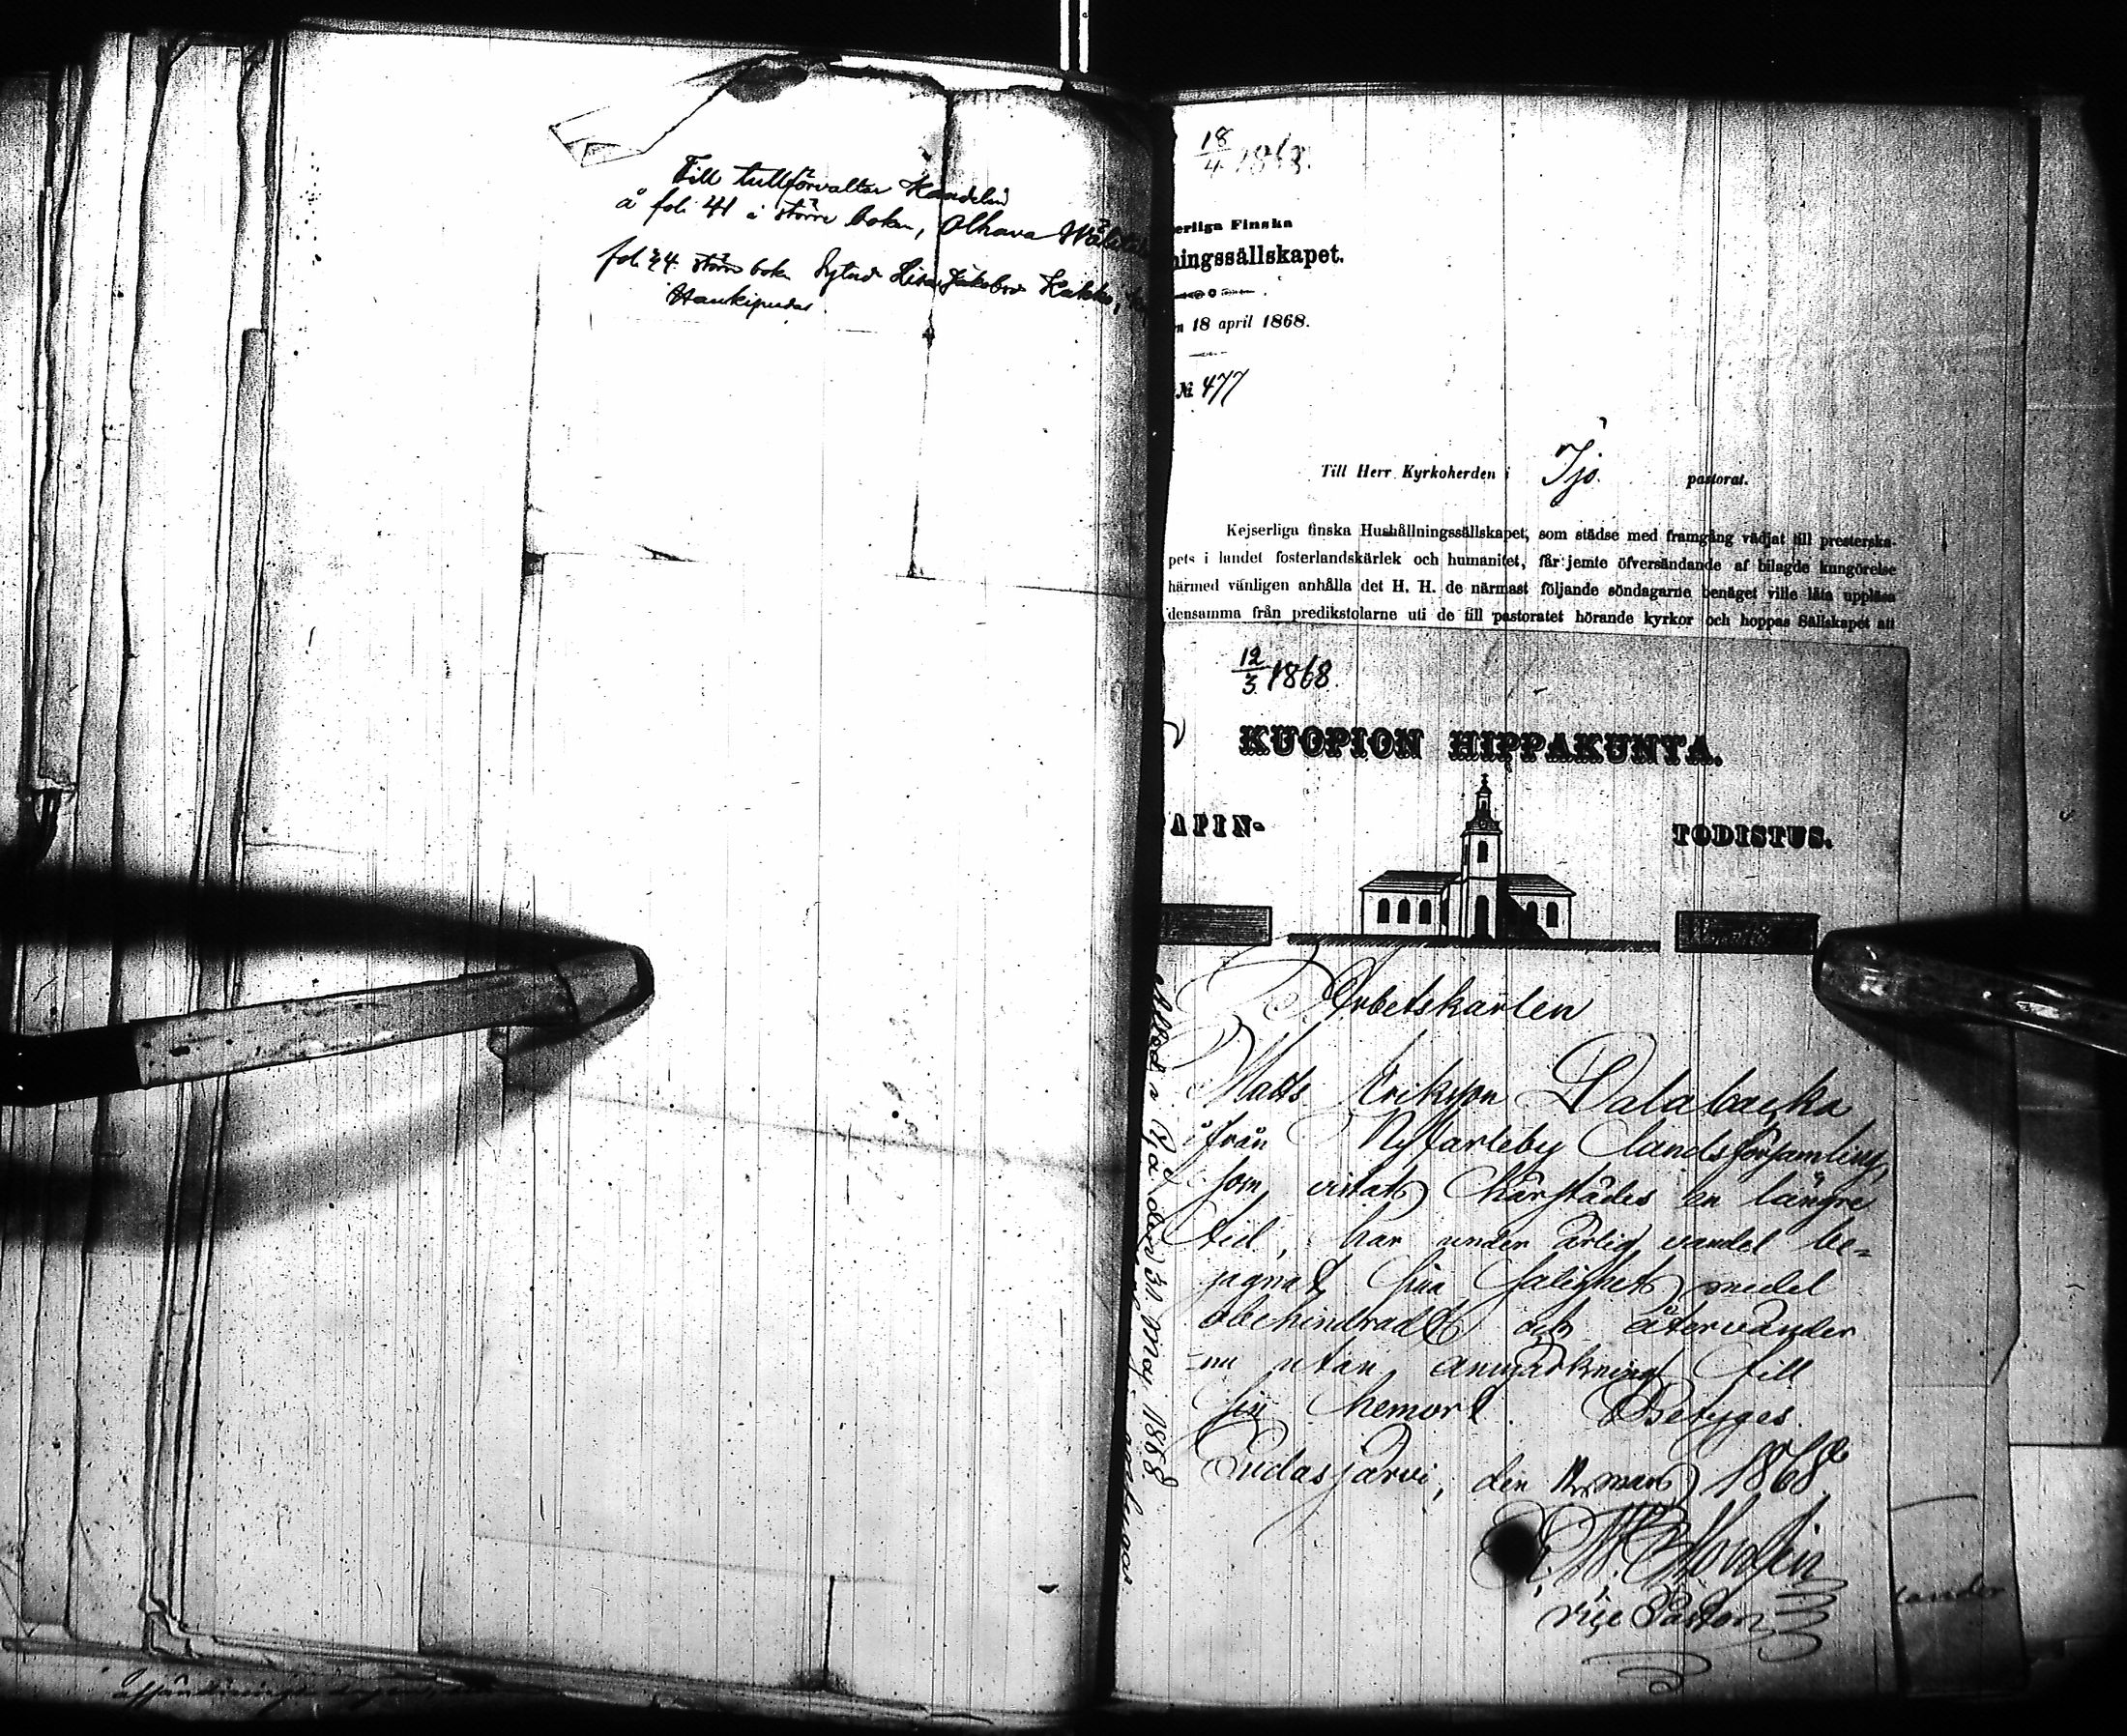 Till tullförvaltar
å fol: 41 i större boken, Olhava
fol: 44 större boken Sytnd Lisa Jakobsd Kakko,
Haukipudas.
18/4 1868.
erliga Finska
ningssällskapet.
n 18 april 1868.
№ 477
Till Herr Kyrkoherden i Ijo pastorat.
Kejserliga finska Hushållningssällskapet, som städse med framgång vädjat till presterska-
pets i landet fosterlandskärlek och humanitet, får jemte öfversändande af bilagde kungörelse
härmed vänligen anhålla det H. H. de närmast följande söndagarne benäget ville låta uppläsa
densamma från predikstolarne uti de till pastoratet hörande kyrkor och hoppas Sällskapet att
12/3 1868.
KUOPION HIPPAKUNTA.
APIN- TODISTUS.
Arbetskarlen
Matts Eriksson Dalabacka
ifrån Nykarleby landsförsamling,
som vistats härstädes en längre
tid, har under ärlig vandel be-
gagnat sina salighets medel
obehindradt och återvänder
nu utan anmärkning till
sin hemort. Betyges
Pudasjärvi, den 12 mars 1868.
vice Pastor
den 31. Maj. 1868.